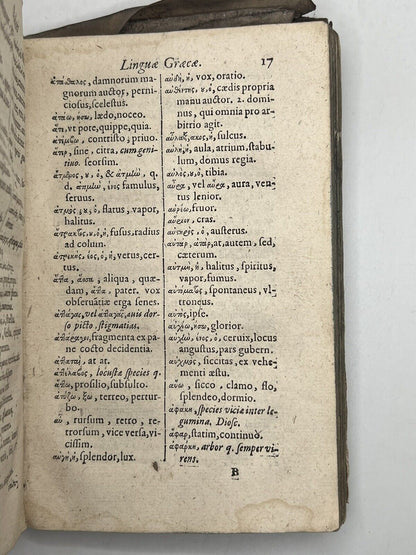 Linguæ Græcæ. 17
ἀτάσθαλος, damnorum ma-
gnorum auctor, perni-
ciosus, scelestus.
ἀτάω, ήσω, lædo, noceo.
ἅτε, vt pote, quippe, quia.
ἀτιμόω, contristo; priuo.
ἄτερ, sine, citra, cum geni-
tino. seorsim.
ὁ, & ἀτμλὼ,
q. d. ἀτμλὼ, ένος famulus,
seruus.
ἀτμὸς, ȣ, ὁ, flatus, vapor,
halitus.
ἄτρακτος, ȣ, ὁ, ἡ, fusus, radius
ad colum.
ἀτρεκὴς, έος, ὁ, ἡ, verus, cer-
tus.
ἄττα, ἅσσα, aliqua, quæ-
dam, ἄττα. pater. vox
obseruátiæ erga senes.
ἀτταγὰς, vel ἀτταγὴς, auis dor-
so picto, stigmatias.
ἀττάραγοι, fragmenta ex pa-
ne cocto decidentia.
ἀτταταῖ, at at.
ἀττέλαβος, locustæ species q.
ἄττω, prosilio, subsulto.
ἀτύζω, ξω, terreo, pertur-
bo.
αὖ, rursum, retro, re-
trorsum, vice versa, vi-
cissim.
αὐγὴ, ἡ, splendor, lux.
αὐδὴ, ἡ, vox, oratio.
αὐθέντης, ȣ, ὁ, cædis propria
manu auctor. 2. domi-
nus, qui omnia pro ar-
bitrio agit.
αὖλαξ, ακος, ἡ, sulcus.
αὐλὴ, ἡ, aula, atrium, stabu-
lum, domus regia.
αὐλὸς, ȣ, ὁ, tibia.
αὔρα, vel αὔρη, aura, ven-
tus lenior.
αὐρίω, fruor.
αὔριον, cras.
αὐστηρὸς, ὁ, austerus.
αὐτὰρ, ἀτὰρ, at, autem, sed,
cæterum.
αὐτμὴ, ἡ, halitus, spiritus,
vapor, fumus.
αὐτόματος, spontaneus, vl-
troneus.
αὐτὸς, ipse.
αὐχέω, ήσω, glorior.
αὐχὼ, ένος, ὁ, ceruix, locus
angustus, pars gubern.
αὐχμὸς, siccitas, ex vehe-
menti æstu.
αὔω, sicco, clamo, flo,
splendeo, dormio.
ἀφάκη, species viciæ inter le-
gumina. Diosc.
ἄφαρ, statim, continuò.
ἀφάρκη, arbor q. semper vi-
rens.
B